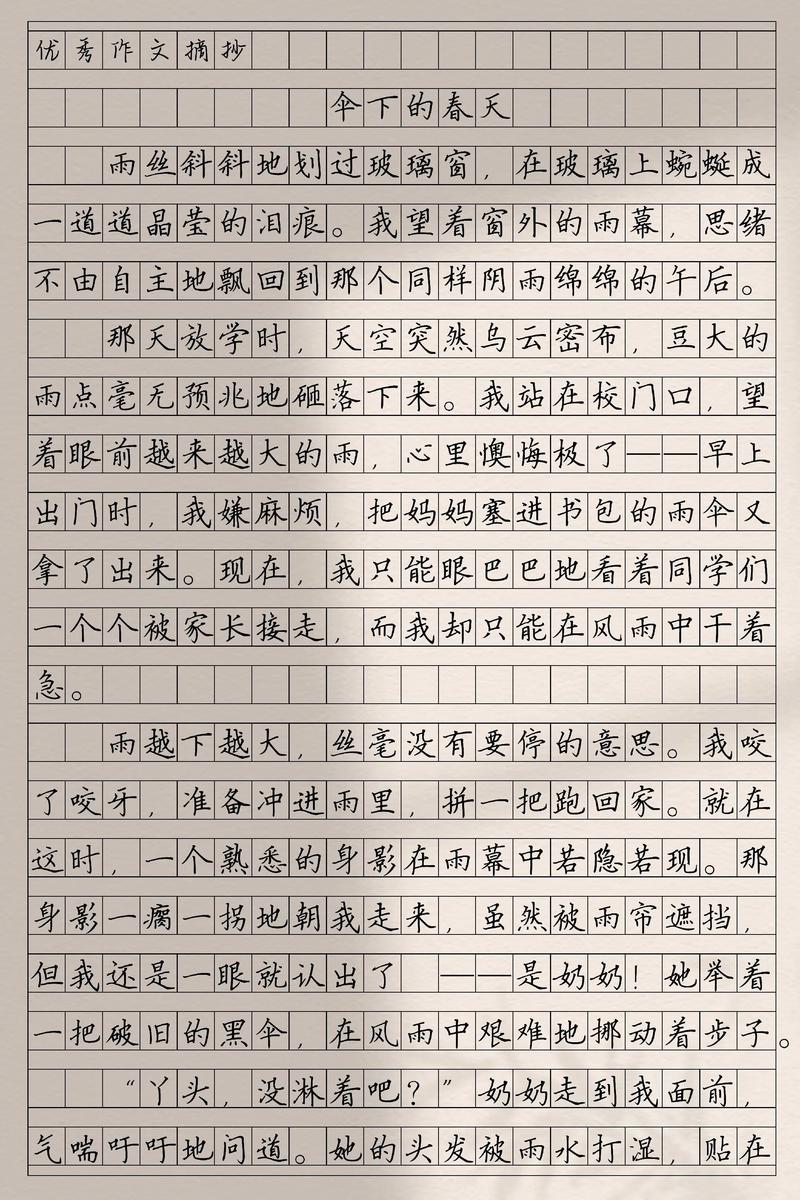 优秀作文摘抄
伞下的春天
雨丝斜斜地划过玻璃窗，在玻璃上蜿蜒成
一道道晶莹的泪痕。我望着窗外的雨幕，思绪
不由自主地飘回到那个同样阴雨绵绵的午后。
那天放学时，天空突然乌云密布，豆大的
雨点毫无预兆地砸落下来。我站在校门口，望
着眼前越来越大的雨，心里懊悔极了——早上
出门时，我嫌麻烦，把妈妈塞进书包的雨伞又
拿了出来。现在，我只能眼巴巴地看着同学们
一个个被家长接走，而我却只能在风雨中干着
急。
雨越下越大，丝毫没有要停的意思。我咬
了咬牙，准备冲进雨里，拼一把跑回家。就在
这时，一个熟悉的身影在雨幕中若隐若现。那
身影一瘸一拐地朝我走来，虽然被雨帘遮挡，
但我还是一眼就认出了 ——是奶奶！她举着
一把破旧的黑伞，在风雨中艰难地挪动着步子。
“丫头，没淋着吧？”奶奶走到我面前，
气喘吁吁地问道。她的头发被雨水打湿，贴在